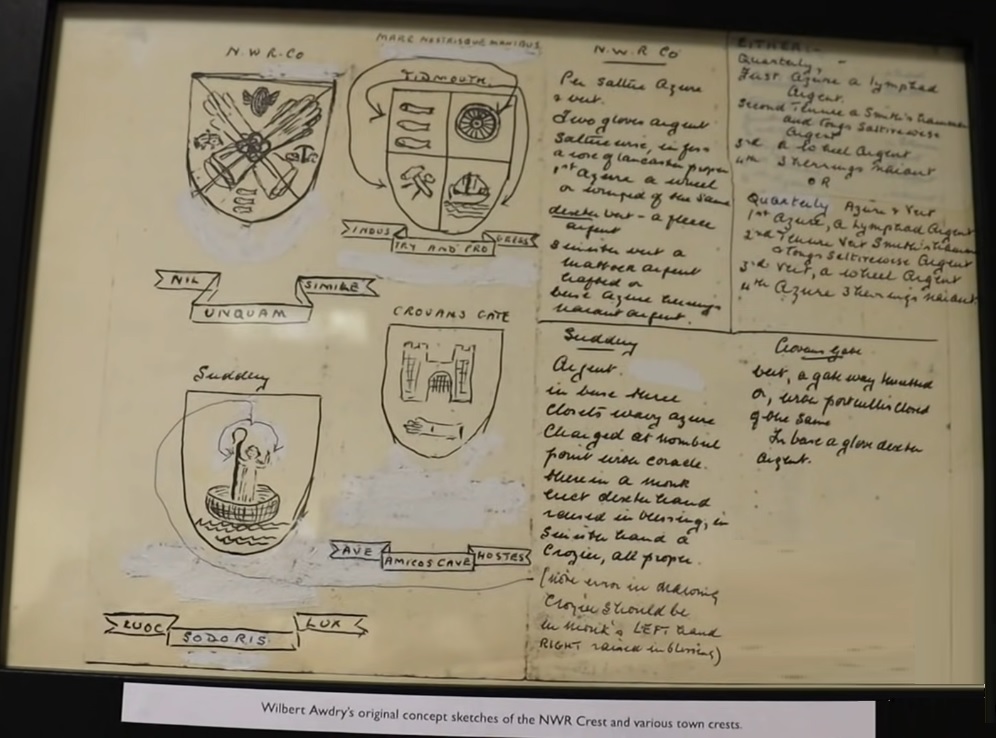 N.W.R.CO
NIL
UNQUAM
SIMILE
MARE NOSTRISQUE MANIBUS
TIDMOUTH
INDUS
TRY AND PRO
GRESS
Suddery
LUOC
SODORIS
LUX
CROVANS GATE
AVE
AMICOS CAVE
HOSTES
N.W.R Co
Per Saltire Azure
& vert.
Two gloves argent
Saltirewise, in fess
a rose of Lancaster proper
1st Azure a wheel
or winged of the same
dexter vert - a fleece
argent
Sinister vert a
mattock argent
hafted or
base Azure herrings
naiant argent.
EITHER:-
Quarterly, -
First Azure a lymphad
Argent.
Second Tenure a Smith's hammer
and tongs Saltirewise
Argent
3rd a wheel Argent
4th 3 herrings naiant
OR
Quarterly Azure & Vert
1st Azure, a Lymphad Argent
2nd Tenure Vert Smith's hammer
& tongs Saltirewise Argent
3rd Vert, a wheel Argent
4th Azure 3 herrings naiant
Suddery
Argent.
in base three
closets wavy azure
Charged at nombril
point with coracle.
therein a monk
erect dexter hand
raised in blessing, in
Sinister hand a
Crozier, all proper.
(note error in drawing
Crozier should be
in monk's LEFT hand
RIGHT raised in blessing)
Crovans Gate
vert, a gateway turretted
or, with portcullis closed
of the same
In base a glove dexter
argent.
Wilbert Awdry's original concept sketches of the NWR Crest and various town crests.